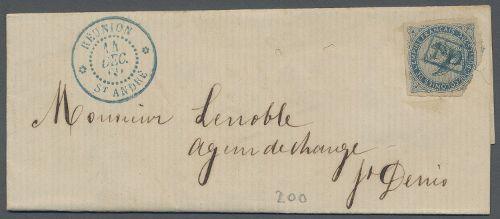 RÉUNION
14
DEC.
ST ANDRÉ
Monsieur Lenoble
agent de change
St Denis
200